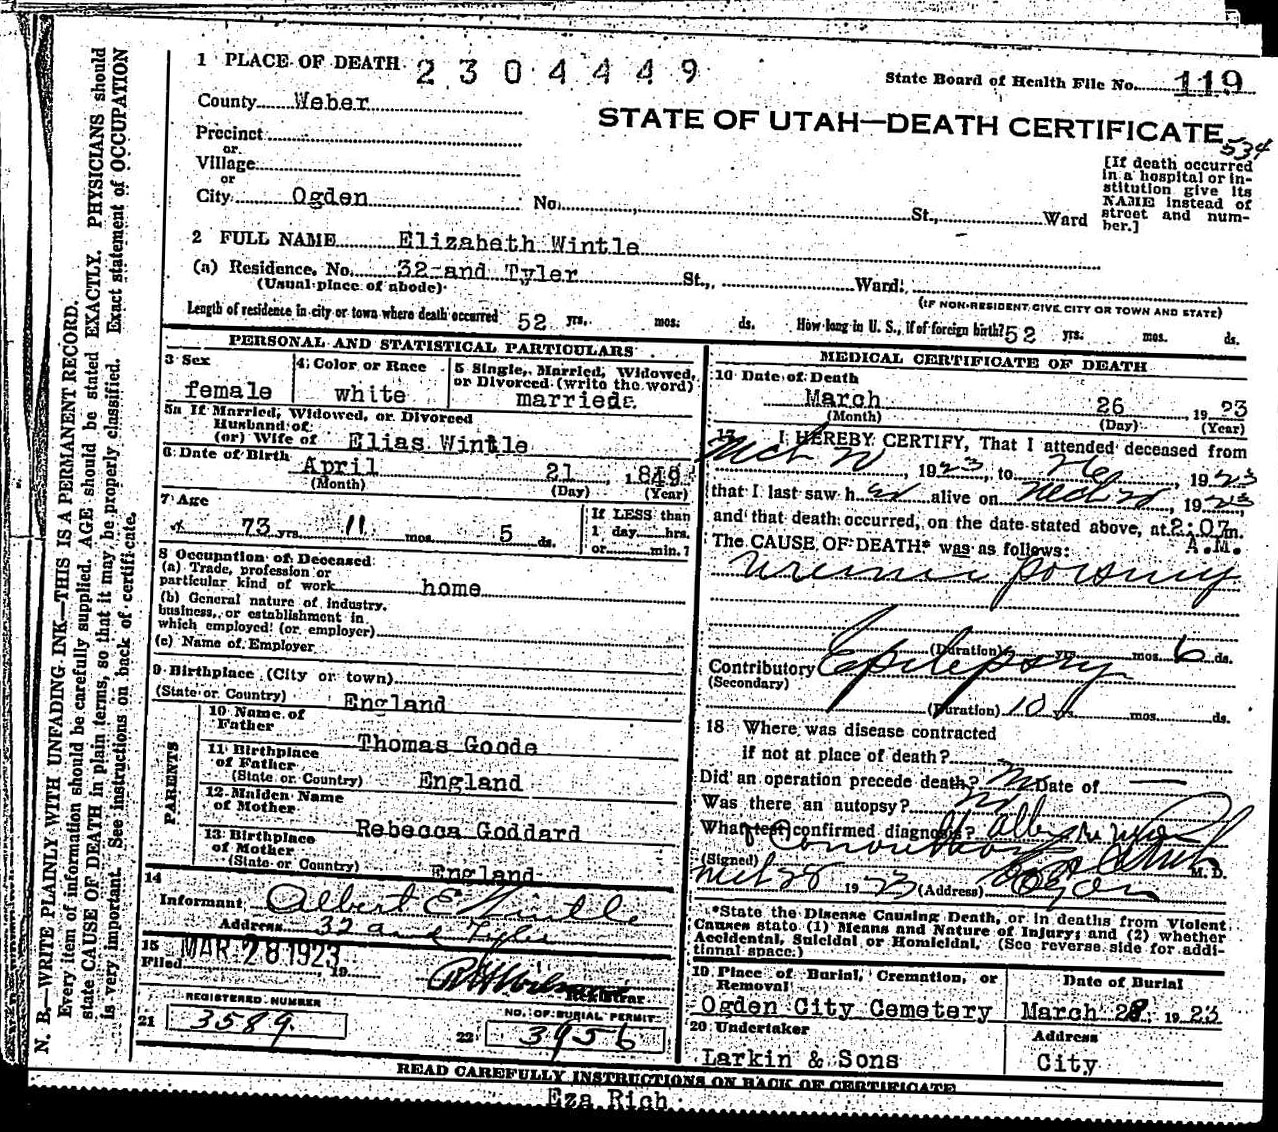 N. B.—WRITE PLAINLY WITH UNFADING INK—THIS IS A PERMANENT RECORD.
Every item of information should be carefully supplied. AGE should be stated EXACTLY. PHYSICIANS should
state CAUSE OF DEATH in plain terms, so that it may be properly classified. Exact statement of OCCUPATION
is very important. See instructions on back of certificate.
1 PLACE OF DEATH 2304449
State Board of Health File No. 119
County Weber
STATE OF UTAH—DEATH CERTIFICATE
534
Precinct
or
Village
or
City Ogden No. St., Ward
[If death occurred
in a hospital or in-
stitution give its
NAME instead of
street and num-
ber.]
2 FULL NAME Elizabeth Wintle
(a) Residence, No. 32 and Tyler St., Ward.
(Usual place of abode) (IF NON-RESIDENT GIVE CITY OR TOWN AND STATE)
Length of residence in city or town where death occurred 52 yrs. mos. ds. How long in U. S., if of foreign birth? 52 yrs. mos. ds.
PERSONAL AND STATISTICAL PARTICULARS
3 Sex
female
4 Color or Race
white
5 Single, Married, Widowed,
or Divorced (write the word)
married
5a If Married, Widowed, or Divorced
Husband of
(or) Wife of Elias Wintle
6 Date of Birth
April 21, 1849
(Month) (Day) (Year)
7 Age
73 yrs. 11 mos. 5 ds.
If LESS than
1 day hrs.
or min.?
8 Occupation of Deceased
(a) Trade, profession or
particular kind of work home
(b) General nature of industry,
business, or establishment in
which employed (or employer)
(c) Name of Employer
9 Birthplace (City or town)
(State or Country) England
PARENTS
10 Name of
Father Thomas Goode
11 Birthplace
of Father
(State or Country) England
12 Maiden Name
of Mother Rebecca Goddard
13 Birthplace
of Mother
(State or Country) England
14
Informant Albert E Wintle
Address 32 and Tyler
15
Filed MAR 28 1923 19
Registrar
REGISTERED NUMBER
21 3589
NO. OF BURIAL PERMIT
22 3956
MEDICAL CERTIFICATE OF DEATH
16 Date of Death
March 26 1923
(Month) (Day) (Year)
17 I HEREBY CERTIFY, That I attended deceased from
Mch 20, 1923, to 26, 1923
that I last saw her alive on Mch, 1923,
and that death occurred, on the date stated above, at 2:07 m.
A.M.
The CAUSE OF DEATH* was as follows:
Uremic poisoning
(Duration) yrs. mos. 6 ds.
Contributory Epilepsy
(Secondary)
(Duration) 10 mos. ds.
18 Where was disease contracted
if not at place of death?
Did an operation precede death? no Date of —
Was there an autopsy? no
What test confirmed diagnosis?
(Signed) M. D.
Mch 28 1923 (Address) Ogden
*State the Disease Causing Death, or in deaths from Violent
Causes state (1) Means and Nature of Injury; and (2) whether
Accidental, Suicidal or Homicidal. (See reverse side for addi-
tional space.)
19 Place of Burial, Cremation, or
Removal
Ogden City Cemetery
Date of Burial
March 28, 1923
20 Undertaker
Larkin & Sons
Address
City
READ CAREFULLY INSTRUCTIONS ON BACK OF CERTIFICATE
Eza Rich